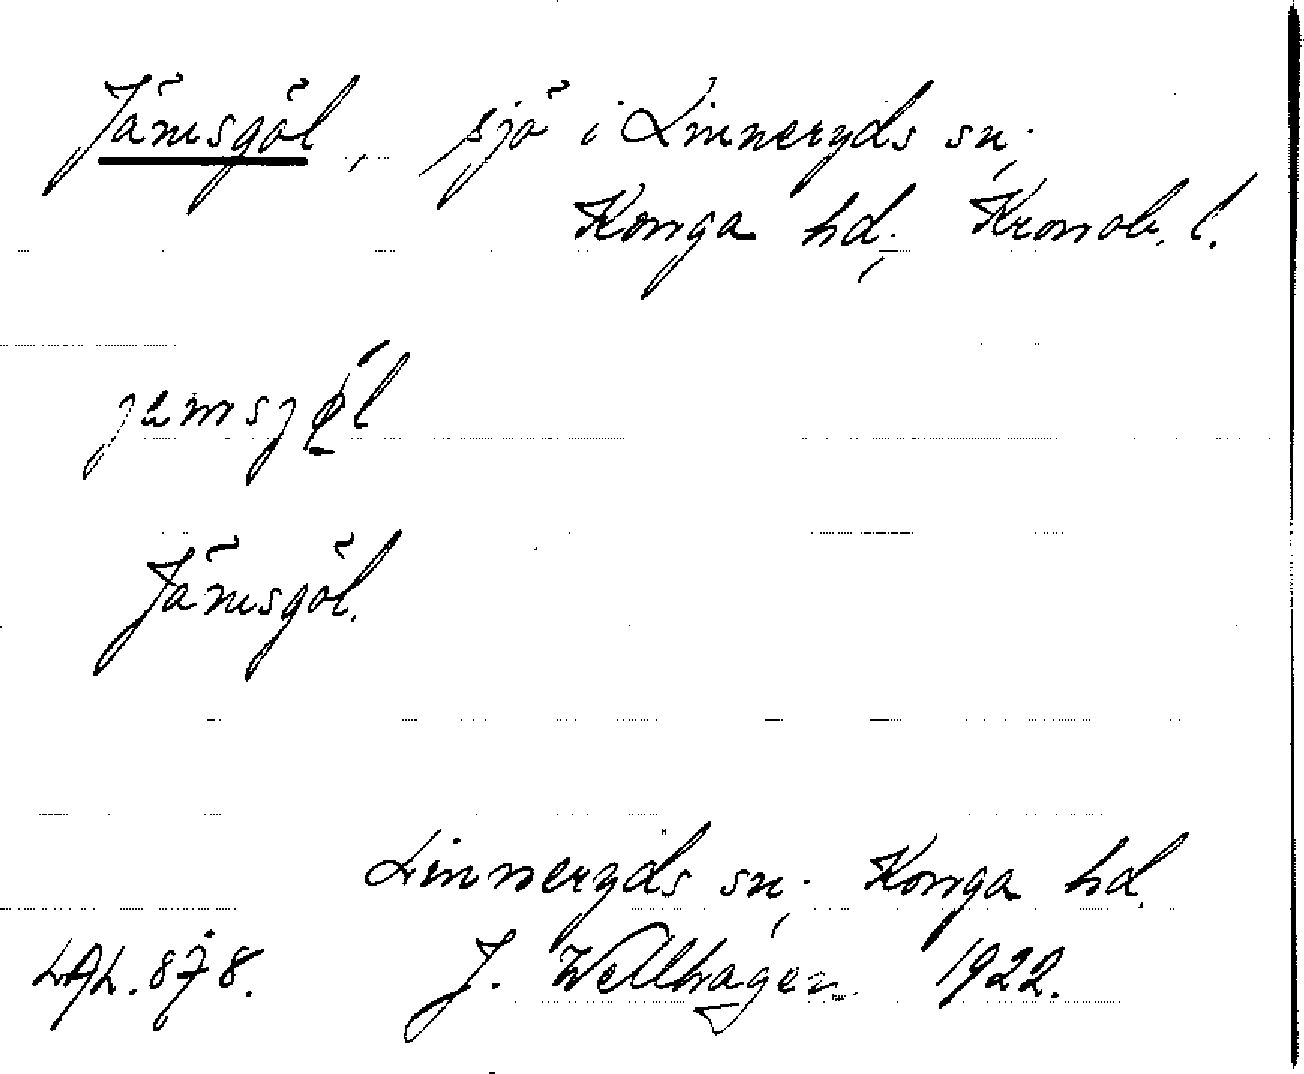 Jämsgöl, sjö i Linneryds sn;
Konga hd; Kronob. l.
Jämsgöl.
Linneryds sn; Konga hd.
LAL. 878. J. Wellhagen 1922.